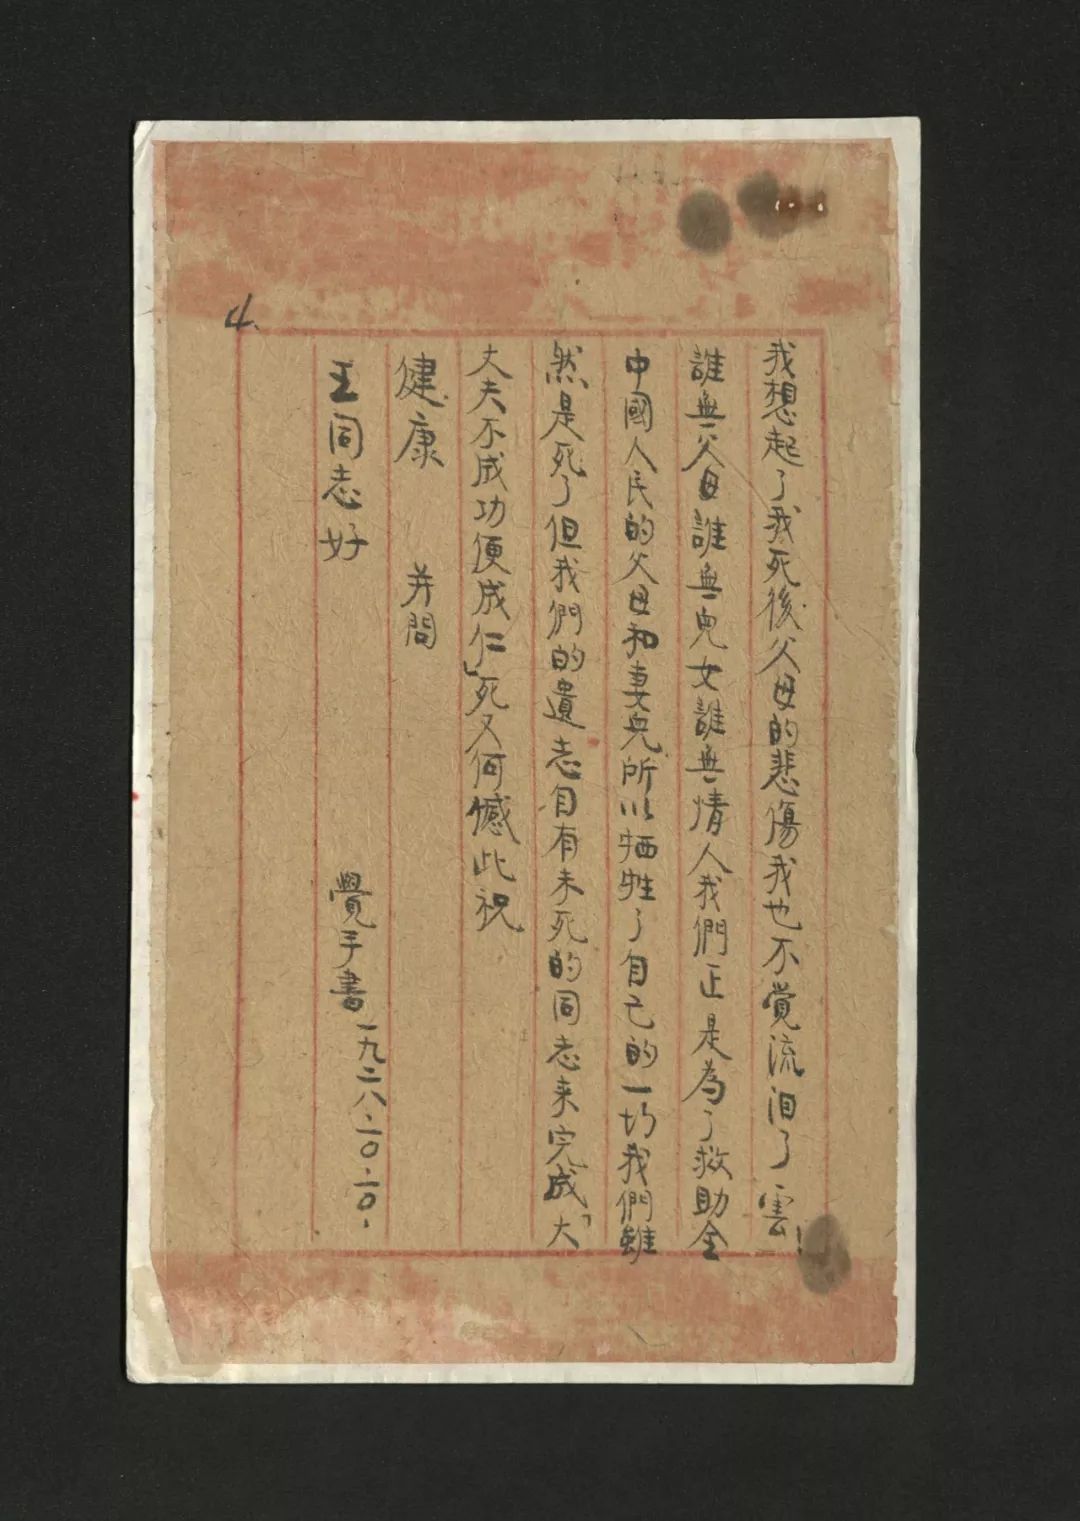 4.
我想起了我死後父母的悲傷我也不覚流泪了雲！
誰無父母誰無兒女誰無情人我們正是為了救助全
中國人民的父母和妻兒所以牺牲了自己的一切我們雖
然是死了但我們的遺志自有未死的同志来完成「大
丈夫不成功便成仁」死又何憾此祝
健康 并問
王同志好 覺手書 一九二八.一〇.一〇.